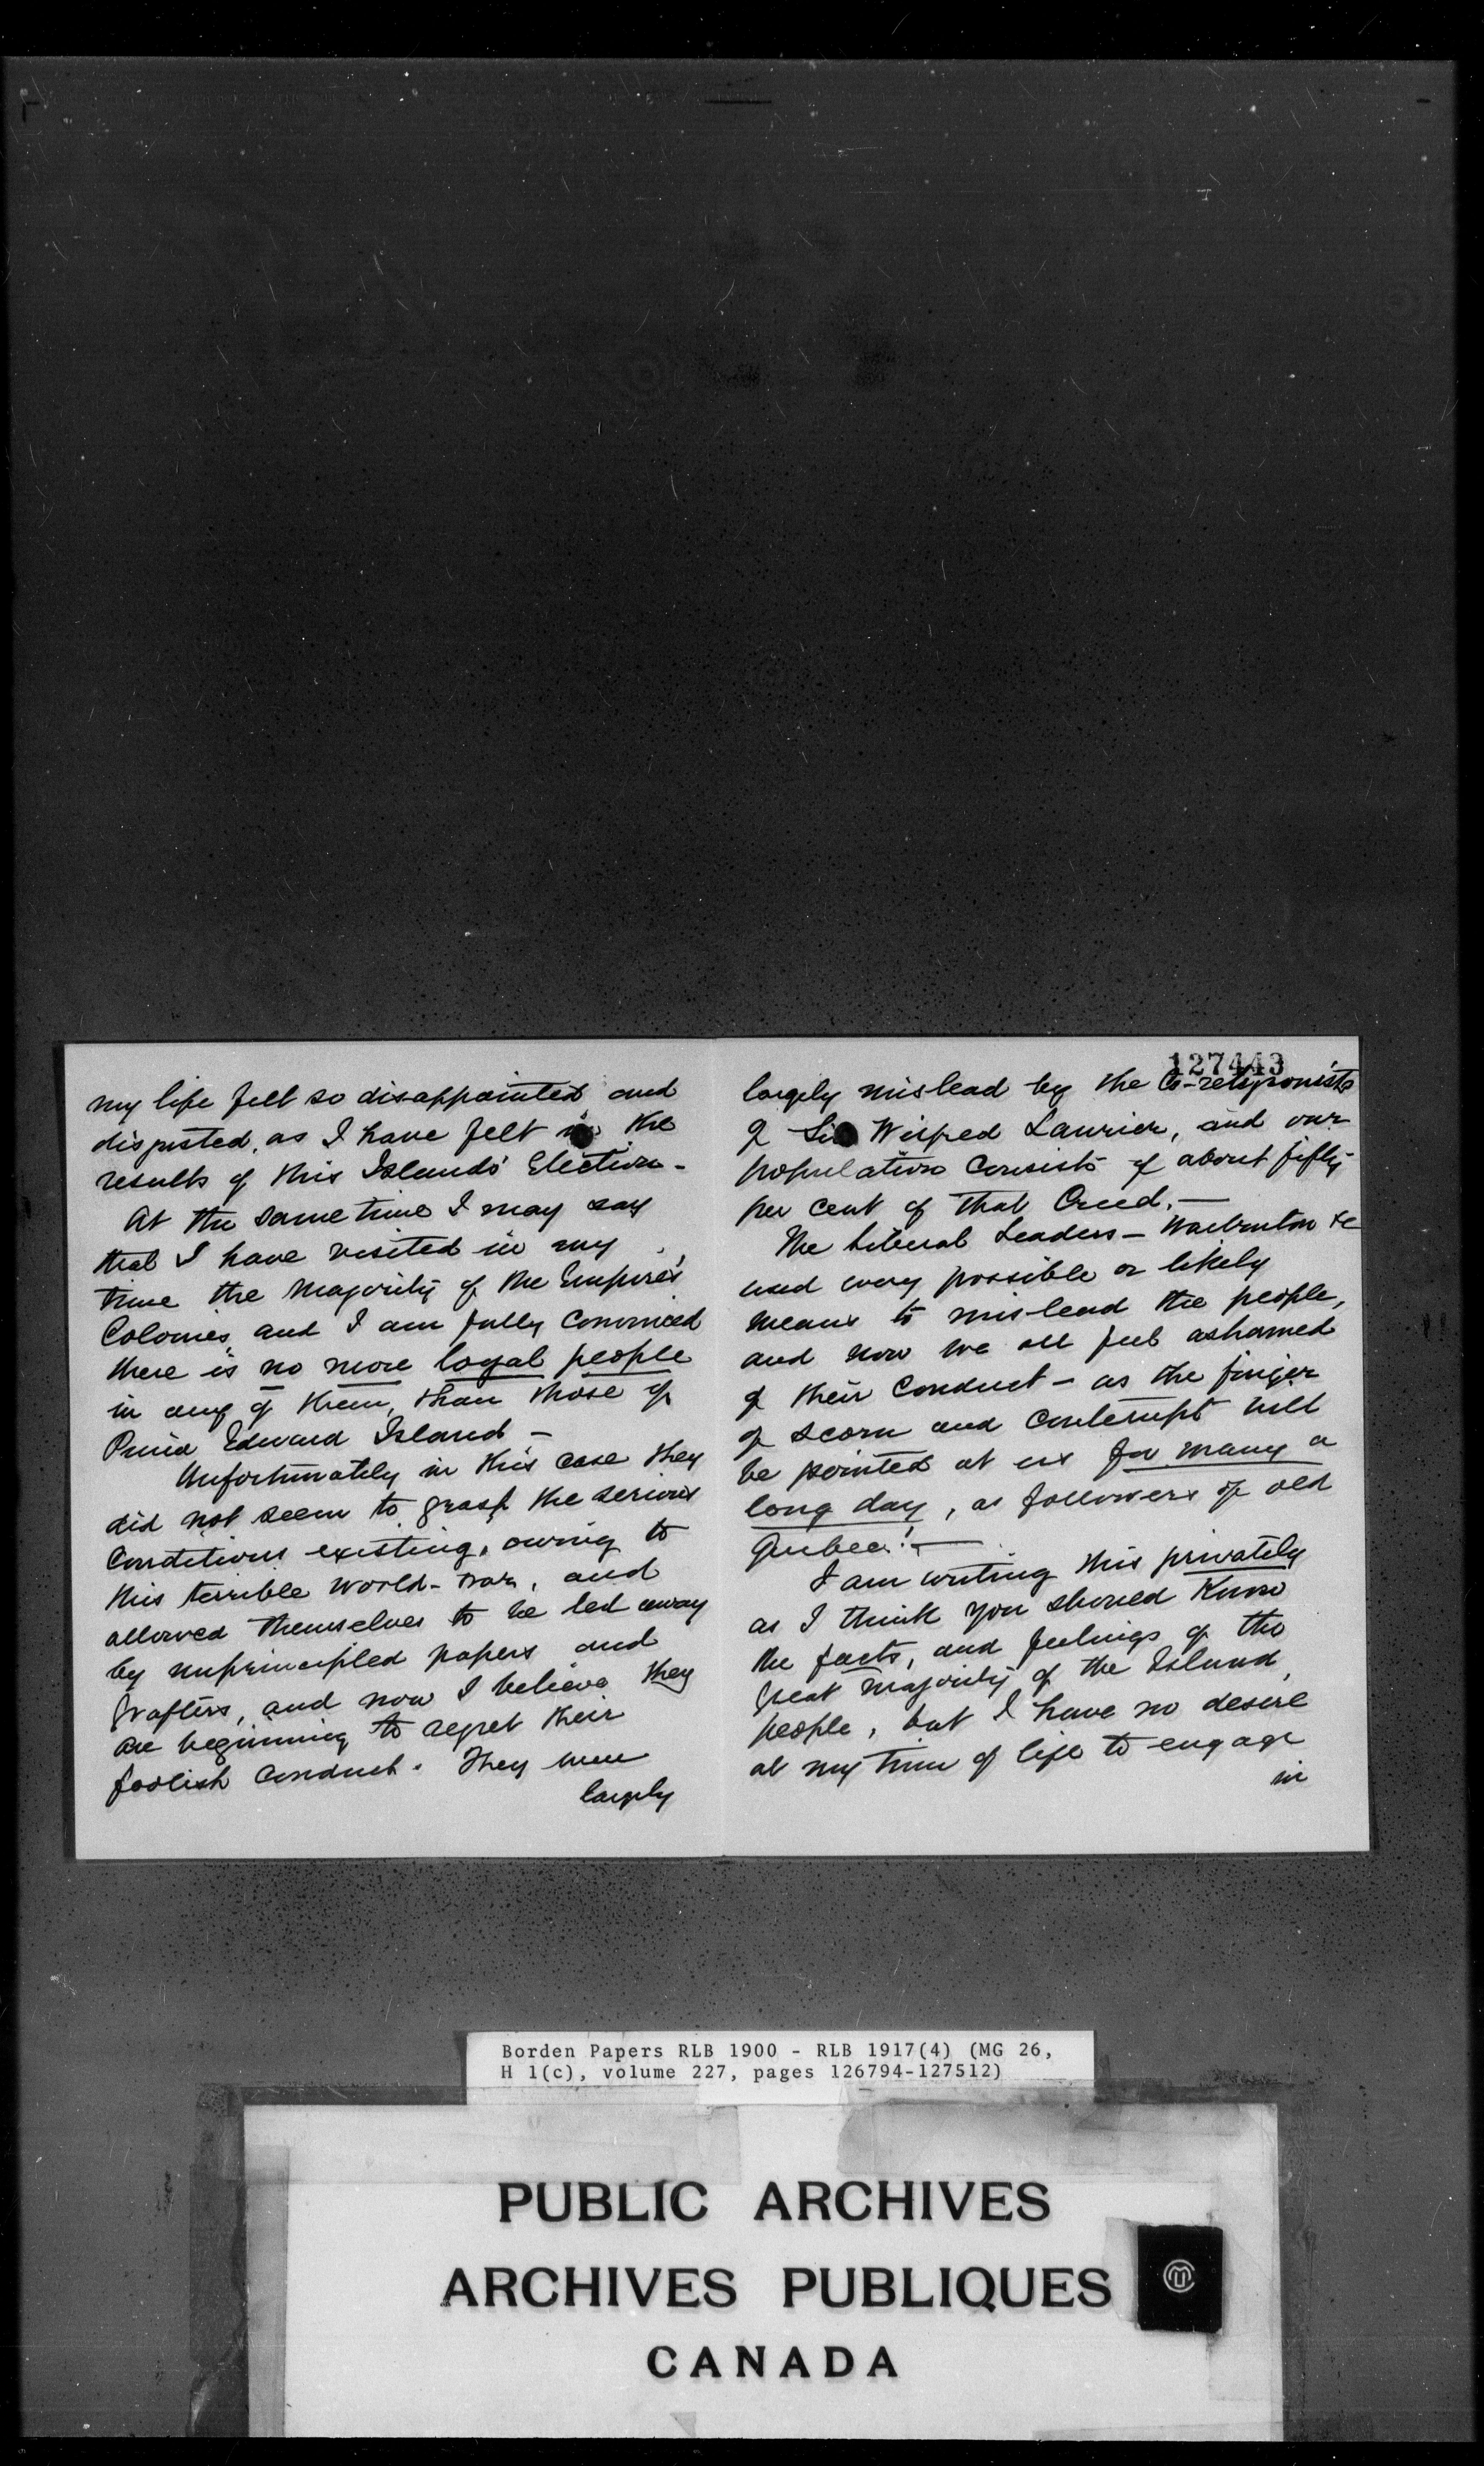 my life felt so disappointed and
disgusted, as I have felt in the
results of this Islands' Election -
At the same time I may say
that I have visited in my
time the majority of the Empire's
Colonies, and I am fully convinced
there is no more loyal people
in any of them, than those of
Prince Edward Island -
Unfortunately in this case they
did not seem to grasp the serious
Conditions existing, owing to
this terrible world-war, and
allowed themselves to be led away
by unprincipled papers and
grafters, and now I believe they
are beginning to regret their
foolish conduct. They were
largely
127443
largely mislead by the Co-religionists
of Sir Wilfred Laurier, and our
population consists of about fifty
per cent of that Creed. —
The Liberal Leaders - Warburton &c
used every possible or likely
means to mislead the people,
and now we all feel ashamed
of their conduct - as the finger
of scorn and contempt will
be pointed at us for many a
long day, as followers of old
Quebec! —
I am writing this privately
as I think you should know
the facts, and feelings of the
great majority of the Island
people, but I have no desire
at my time of life to engage
in
Borden Papers RLB 1900 - RLB 1917(4) (MG 26,
H 1(c), volume 227, pages 126794-127512)
PUBLIC ARCHIVES
ARCHIVES PUBLIQUES
CANADA